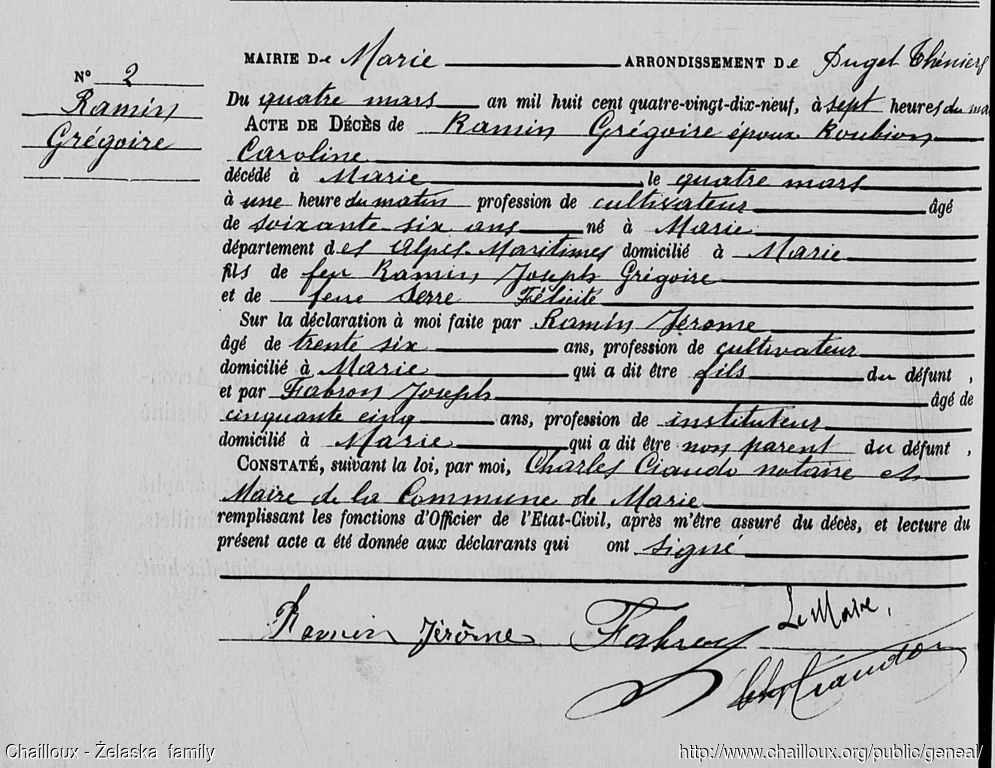 MAIRIE De Marie ARRONDISSEMENT De Puget Théniers
N° 2
Ramin
Grégoire
Du quatre mars an mil huit cent quatre-vingt-dix-neuf, à sept heures du ma
ACTE DE DÉCÈS de Ramin Grégoire époux Roubion
Caroline
décédé à Marie le quatre mars
à une heure du matin profession de cultivateur âgé
de soixante six ans né à Marie
département des Alpes-Maritimes domicilié à Marie
fils de feu Ramin Joseph Grégoire
et de feue Serre Félicité
Sur la déclaration à moi faite par Ramin Jérome
âgé de trente six ans, profession de cultivateur
domicilié à Marie qui a dit être fils du défunt,
et par Fabron Joseph âgé de
cinquante cinq ans, profession de instituteur
domicilié à Marie qui a dit être non parent du défunt,
CONSTATÉ, suivant la loi, par moi, Charles Ciaudo notaire et
Maire de la Commune de Marie
remplissant les fonctions d'Officier de l'Etat-Civil, après m'être assuré du décès, et lecture du
présent acte a été donnée aux déclarants qui ont signé
Le Maire,
Ramin Jérôme Fabron
Ciaudo
Chailloux - Żelaska family http://www.chailloux.org/public/geneal/